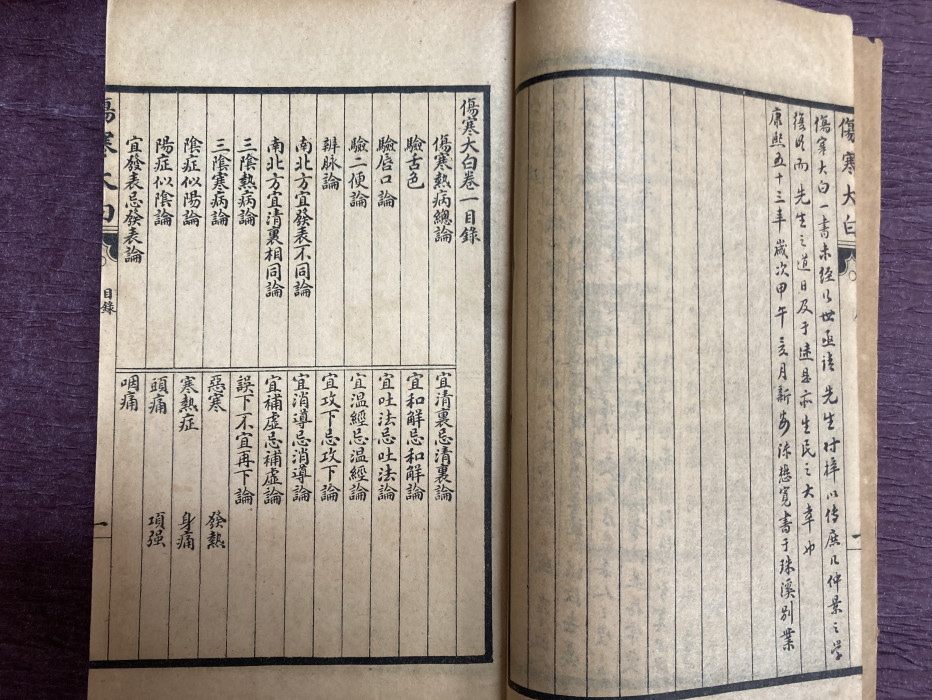 傷寒大白
傷寒大白一書未經行世亟請先生付梓以傳庶幾仲景之學
後明而先生之道日及于遠是亦生民之大幸也
康熙五十三年歲次甲午三月新安陳懋寬書于珠溪別業
傷寒大白卷一目錄
傷寒熱病總論
驗舌色
驗唇口論
驗二便論
辨脉論
南北方宜發表不同論
南北方宜清裏相同論
三陰熱病論
三陰寒病論
陰症似陽論
陽症似陰論
宜發表忌發表論
宜清裏忌清裏論
宜和解忌和解論
宜吐法忌吐法論
宜溫經忌溫經論
宜攻下忌攻下論
宜消導忌消導論
宜補虛忌補虛論
誤下不宜再下論
惡寒 發熱
寒熱症 身痛
頭痛 項强
咽痛
傷寒大白
目錄
一